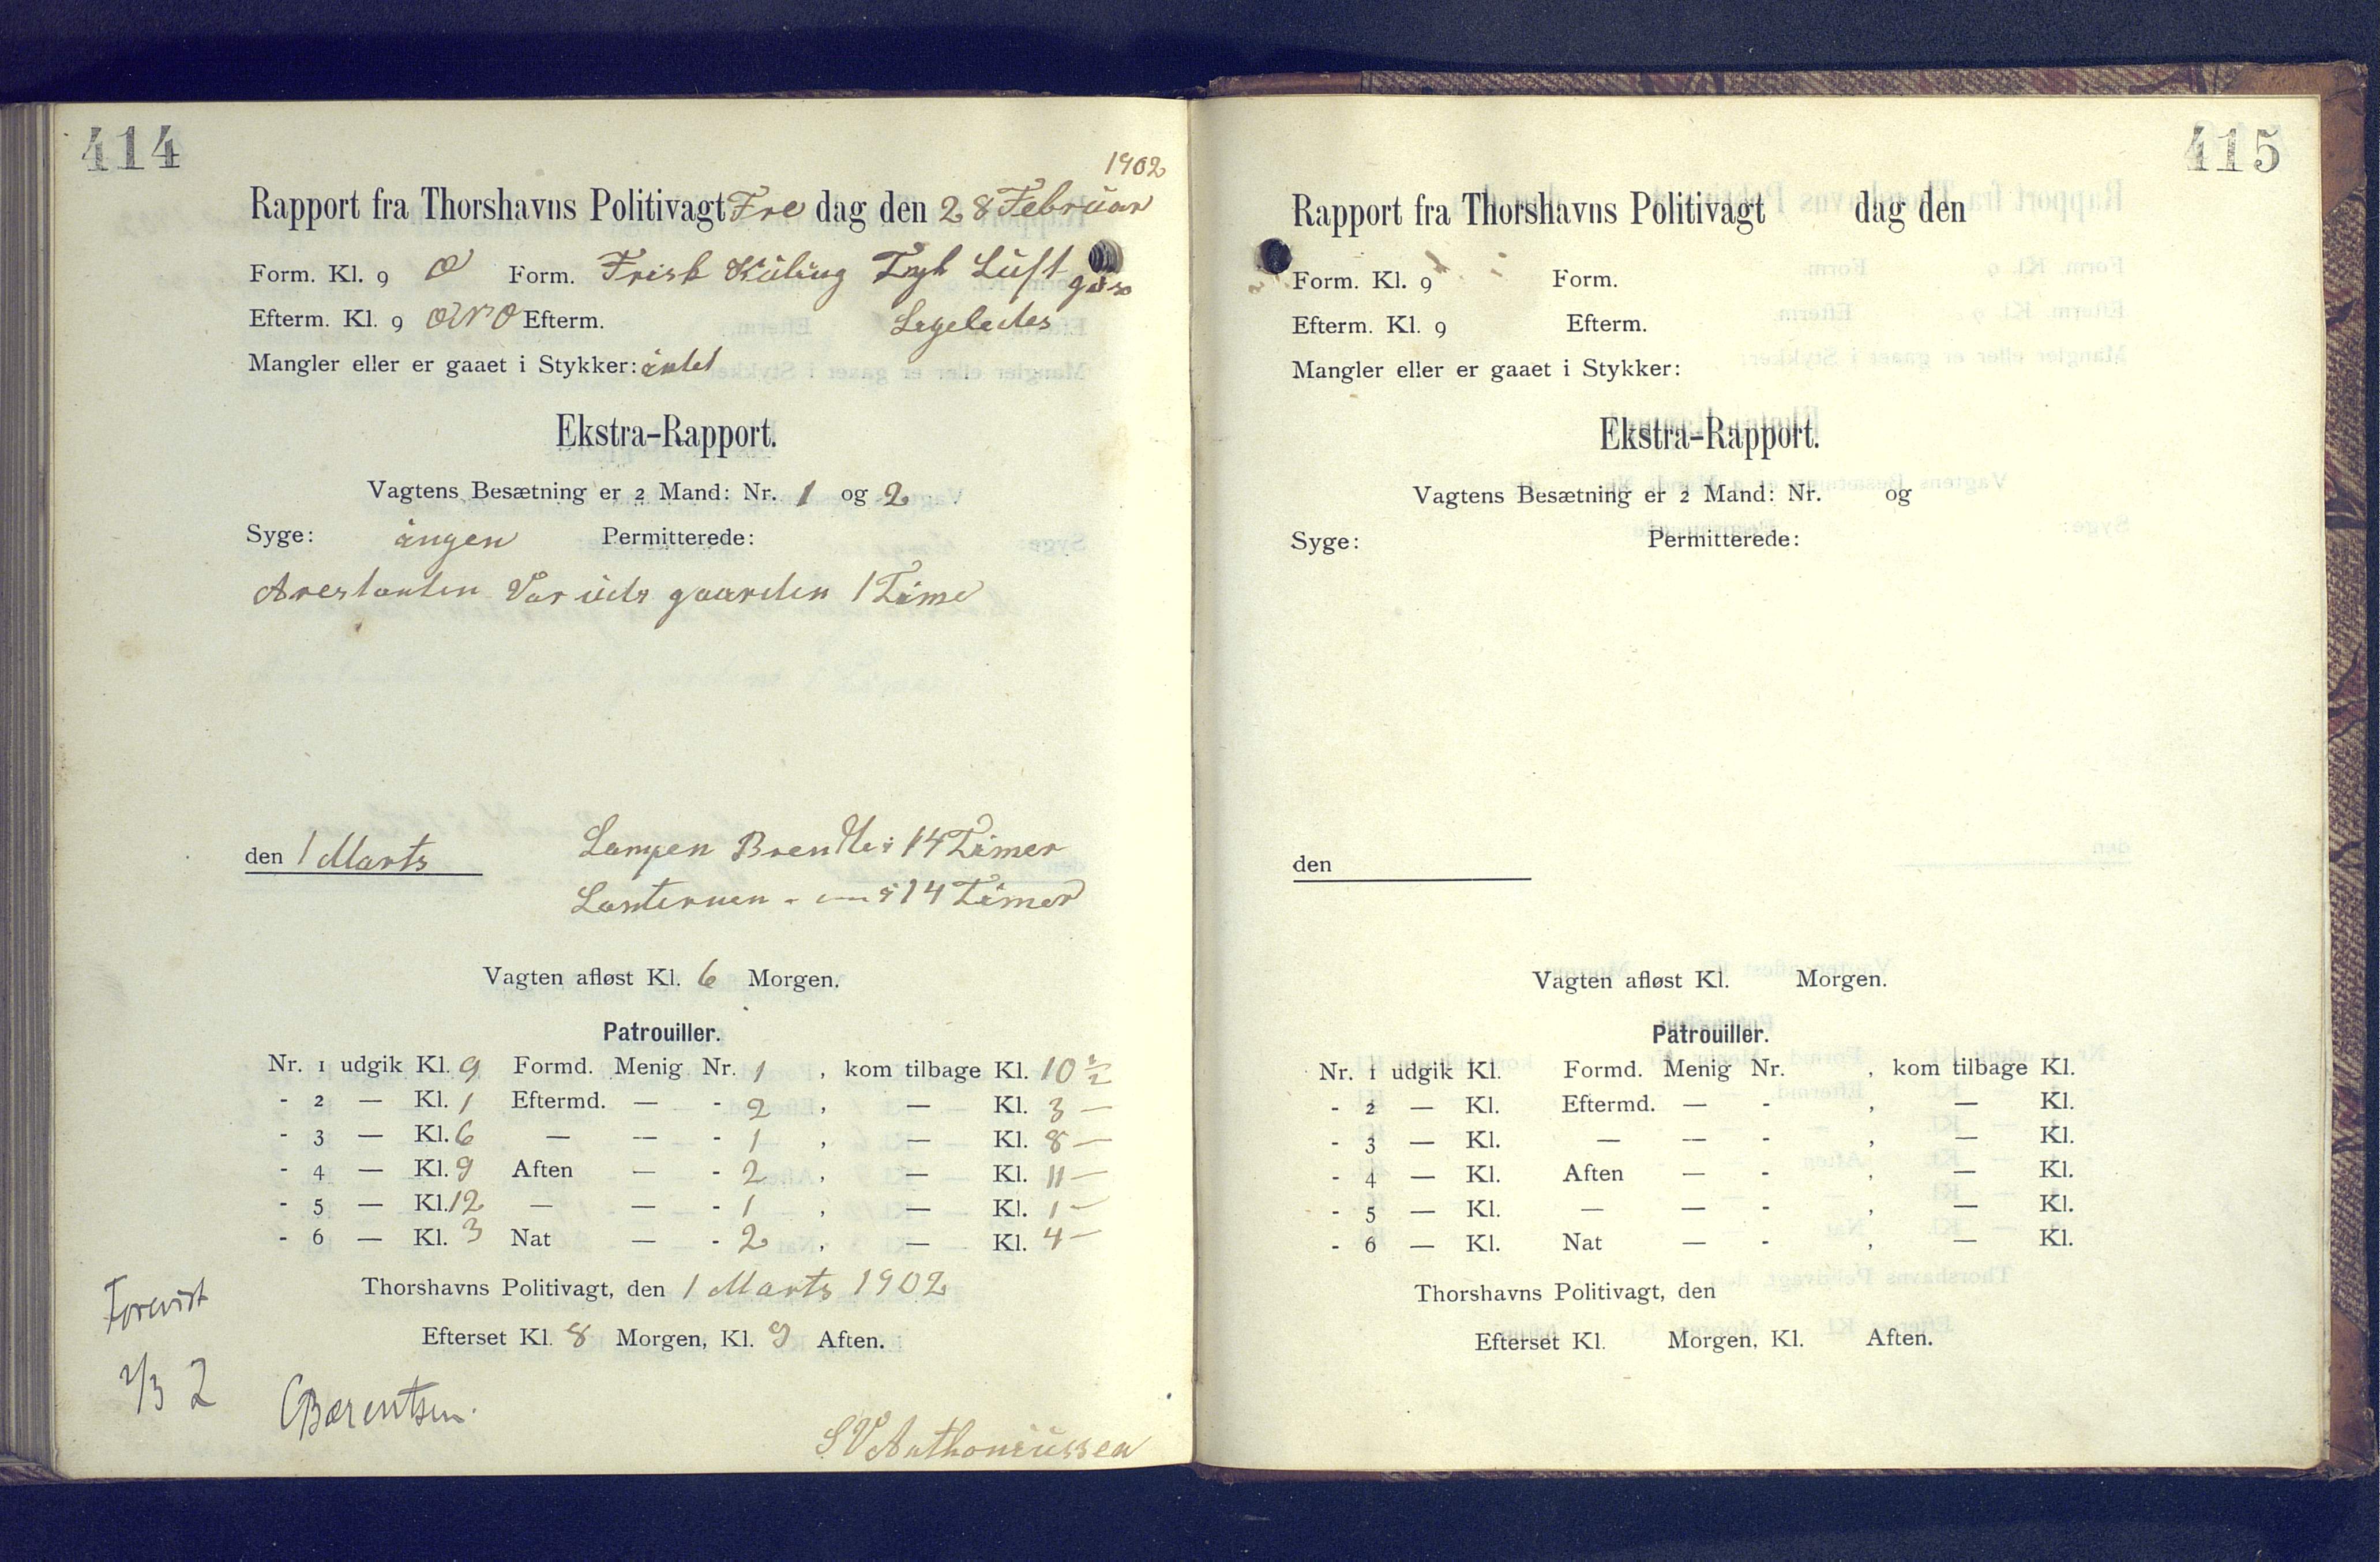 414
1902
Rapport fra Thorshavns Politivagt Fre dag den 28 Februar
Form. Kl. 9 O Form. Frisk Kuling Tyk Luft
Efterm. Kl. 9 Efterm. Ligeledes
Mangler eller er gaaet i Stykker: intet
Ekstra-Rapport.
Vagtens Besætning er 2 Mand: Nr. 1 og 2
Syge: ingen Permitterede:
Arestanten Var ude gaarden 1 Time
den 1 Marts Lampen Brendte i 14 Timer
Lanternen - — i 14 Timer
Vagten afløst Kl. 6 Morgen.
Patrouiller.
Nr. 1 udgik Kl. 9 Formd. Menig Nr. 1 , kom tilbage Kl. 10 ½
- 2 — Kl. 1 Eftermd. — - 2 , — Kl. 3 —
- 3 — Kl. 6 — — - 1 , — Kl. 8 —
- 4 — Kl. 9 Aften — - 2 , — Kl. 11 —
- 5 — Kl. 12 — — - 1 , — Kl. 1 —
- 6 — Kl. 3 Nat — - 2 , — Kl. 4 —
Thorshavns Politivagt, den 1 Marts 1902
Efterset Kl. 8 Morgen, Kl. 9 Aften.
Forevist
1/3 2
CBærentsen.
SVAnthoniussen
415
Rapport fra Thorshavns Politivagt dag den
Form. Kl. 9 Form.
Efterm. Kl. 9 Efterm.
Mangler eller er gaaet i Stykker:
Ekstra-Rapport.
Vagtens Besætning er 2 Mand: Nr. og
Syge: Permitterede:
den
Vagten afløst Kl. Morgen.
Patrouiller.
Nr. 1 udgik Kl. Formd. Menig Nr. , kom tilbage Kl.
- 2 — Kl. Eftermd. — - , — Kl.
- 3 — Kl. — — - , — Kl.
- 4 — Kl. Aften — - , — Kl.
- 5 — Kl. — — - , — Kl.
- 6 — Kl. Nat — - , — Kl.
Thorshavns Politivagt, den
Efterset Kl. Morgen, Kl. Aften.